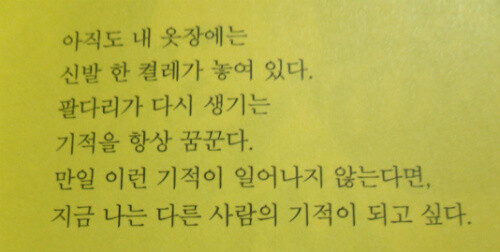 아직도 내 옷장에는
신발 한 켤레가 놓여 있다.
팔다리가 다시 생기는
기적을 항상 꿈꾼다.
만일 이런 기적이 일어나지 않는다면,
지금 나는 다른 사람의 기적이 되고 싶다.